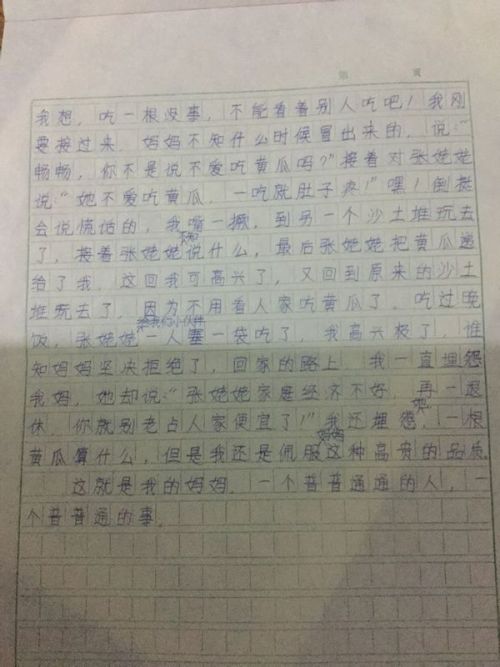 第 页
我想，吃一根没事，不能看着别人吃吧！我刚
要接过来，妈妈不知什么时候冒出来的，说：“
畅畅，你不是说不爱吃黄瓜吗？”接着对张姥姥
说：“她不爱吃黄瓜，一吃就肚子疼！”嘿！倒挺
会说慌话的，我嘴一撅，到另一个沙土堆玩去
了，接着张姥姥说什么，最后张姥姥把黄瓜递
给了我。这回我可高兴了，又回到原来的沙土
堆玩去了，因为不用看人家吃黄瓜了。吃过晚
给我们小伙伴
饭，张姥姥一人塞一袋吃了，我高兴极了，谁
知妈妈坚决拒绝了，回家的路上，我一直埋怨
我妈，她却说：“张姥姥家庭经济不好，再一退
休，你就别老占人家便宜了！”我还埋怨她，一根
妈妈
黄瓜算什么，但是我还是佩服这种高贵的品质
这就是我的妈妈，一个普普通通的人，一
个普普通的事。